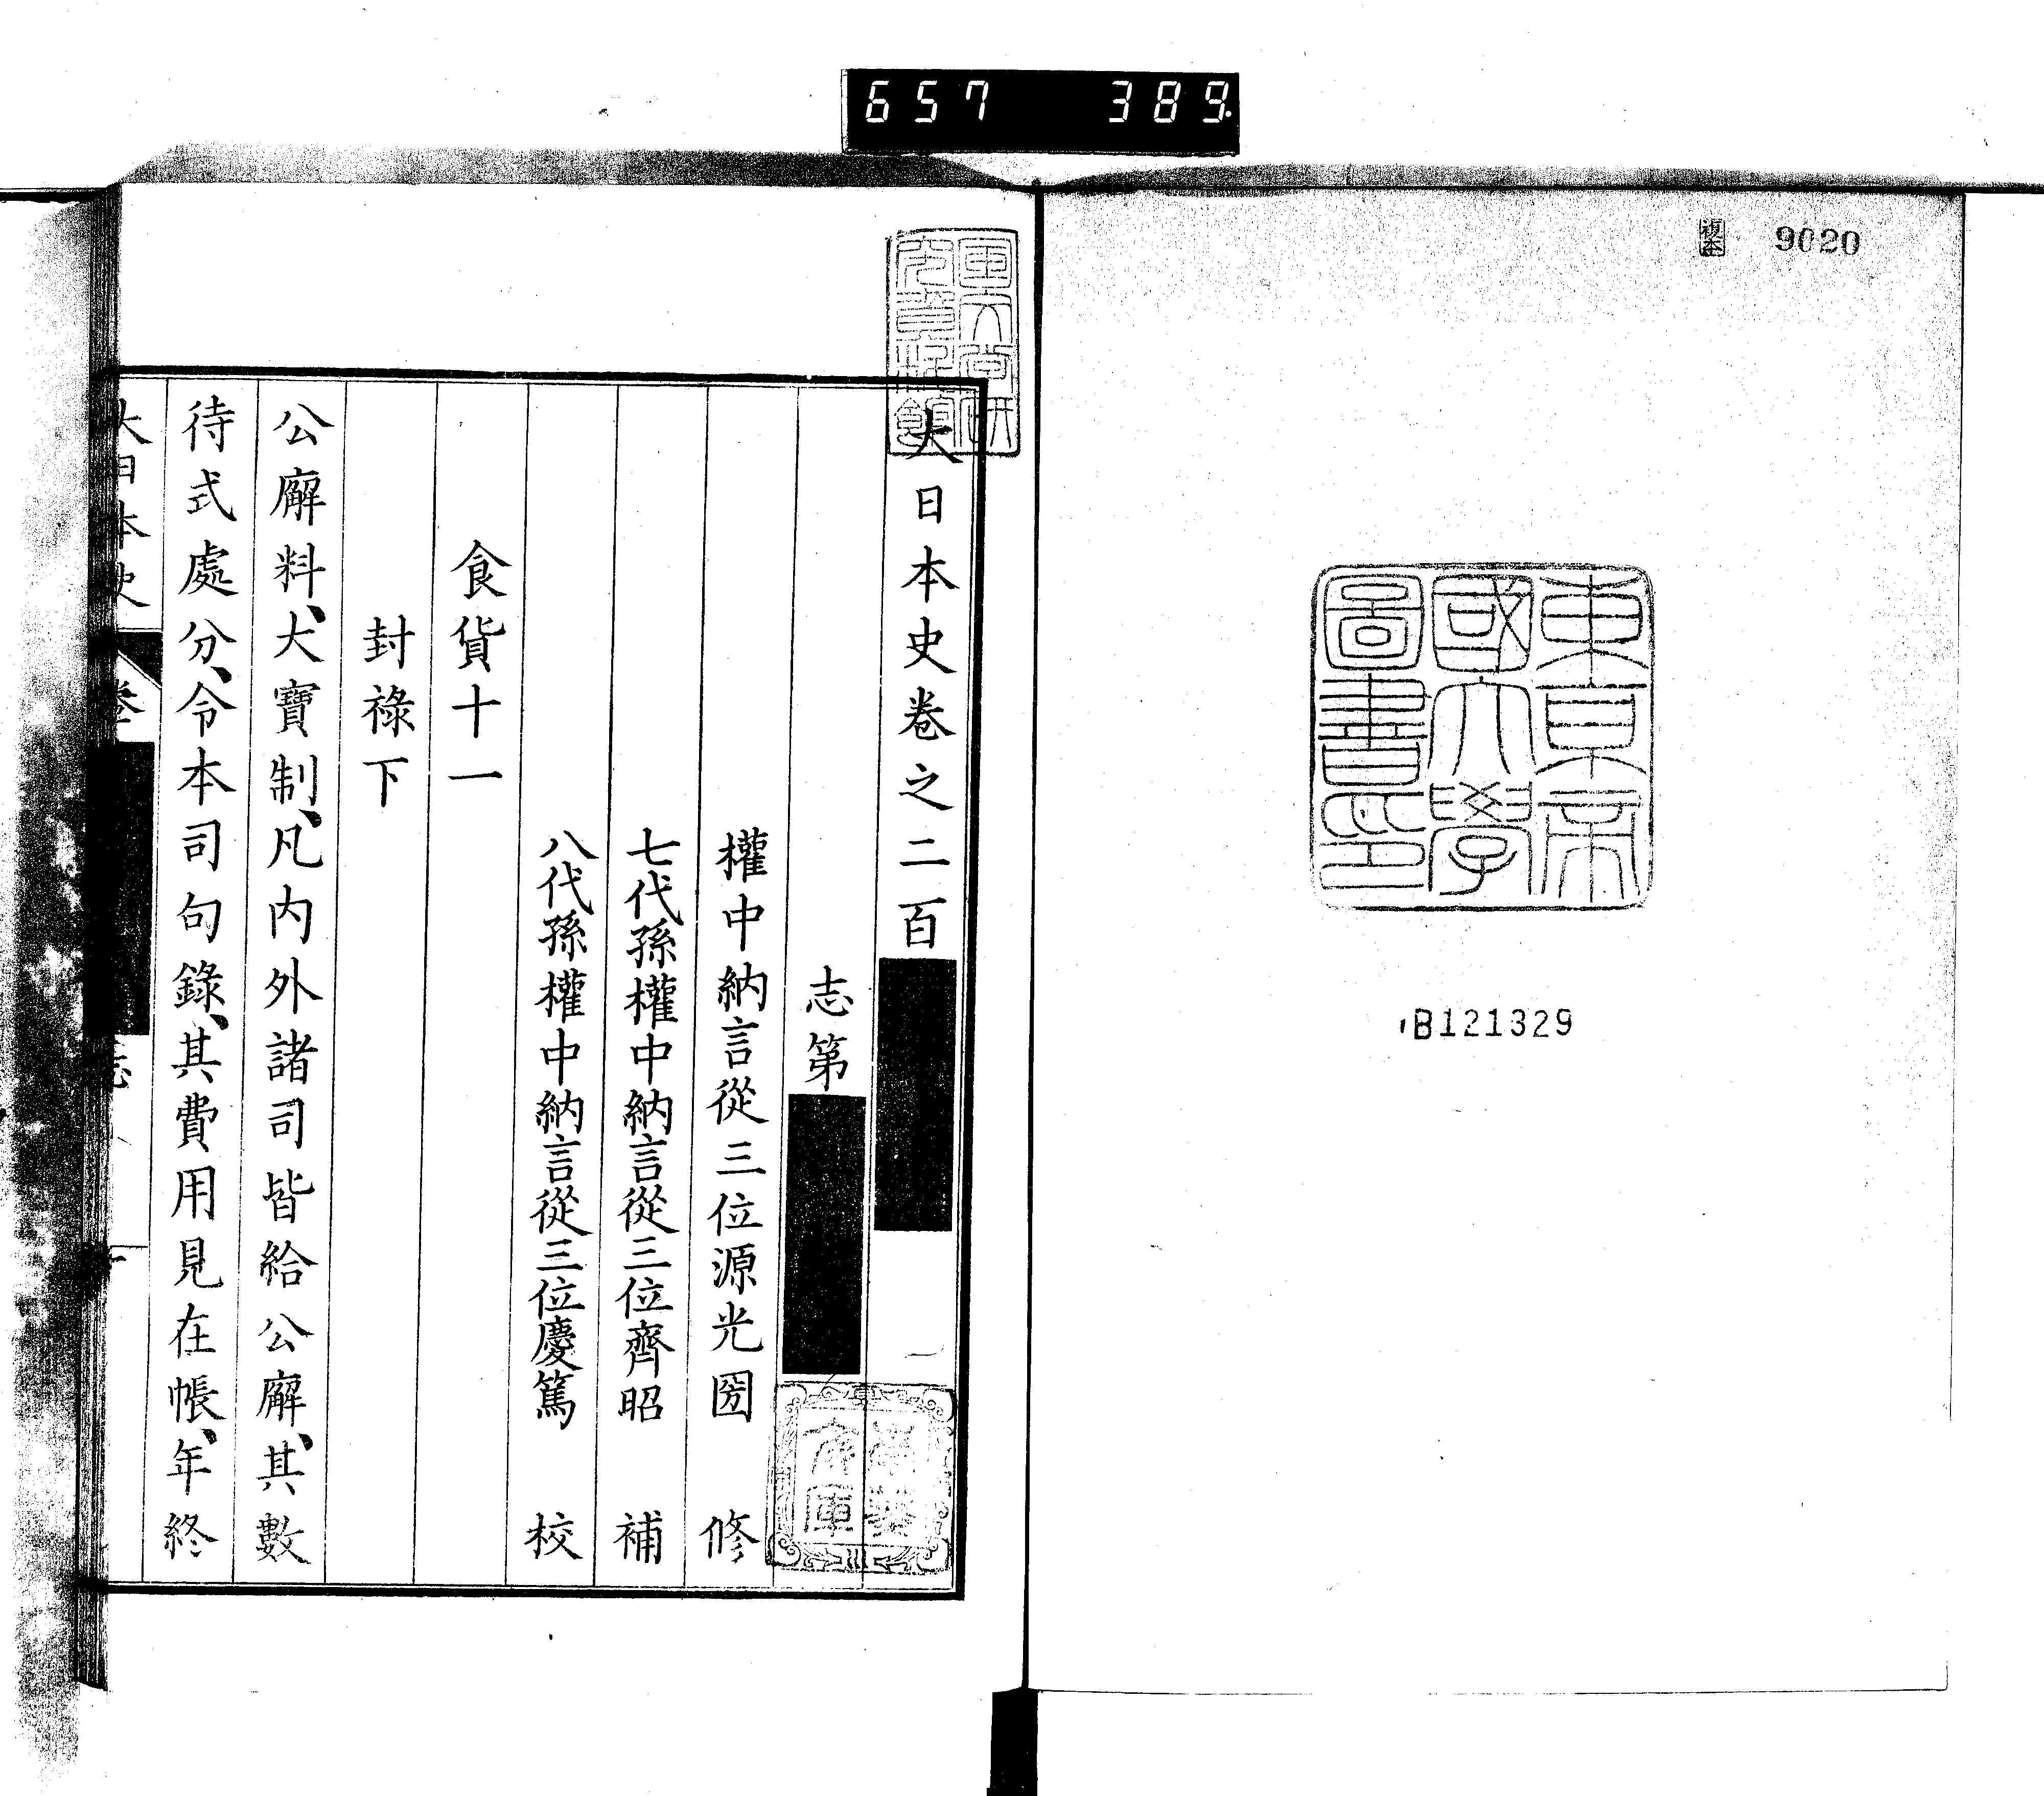 657 389
複本
9020
東京帝
國大學
圖書印
B121329
大日本史卷之二百
志第
權中納言從三位源光圀 修
七代孫權中納言從三位齊昭 補
八代孫權中納言從三位慶篤 校
食貨十一
封祿下
公廨料、大寶制、凡內外諸司皆給公廨、其數
待式處分、令本司句錄、其費用見在帳、年終
大日本史
卷
志